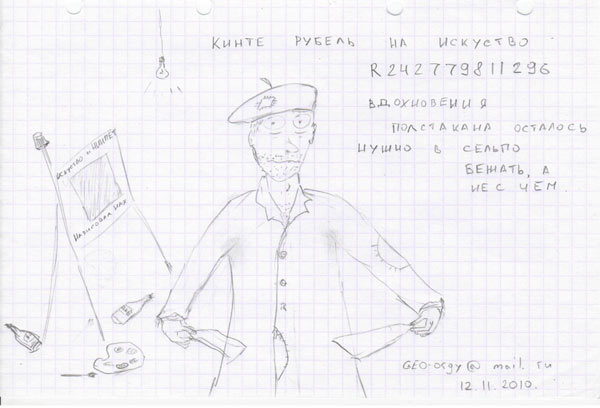 КИНТЕ РУБЕЛЬ НА ИСКУСТВО
R242779811296
ВДОХНОВЕНИЯ
ПОЛСТАКАНА ОСТАЛОСЬ
НУЖНО В СЕЛЬПО
БЕЖАТЬ, А
НЕ С ЧЕМ.
ИСКУСТВО
GEO-orgy@mail.ru
12.11.2010.